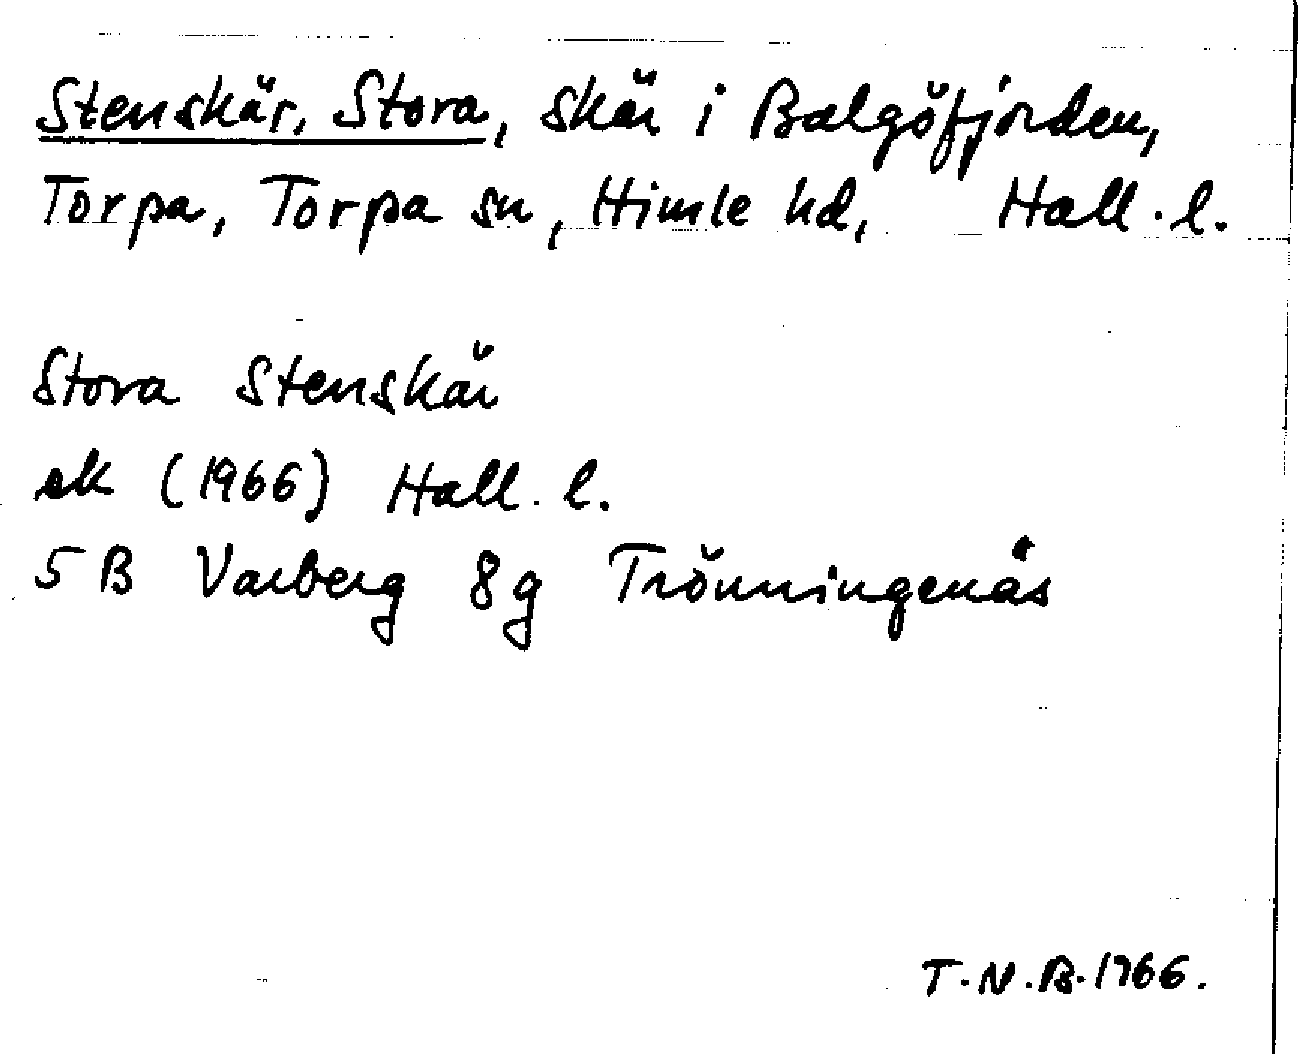 Stenskär, Stora, skär i Balgöfjorden,
Torpa, Torpa sn, Himle hd, Hall. l.
Stora Stenskär
ek (1966) Hall. l.
5 B Varberg 8 g Trönningenäs
T.N.B. 1966.